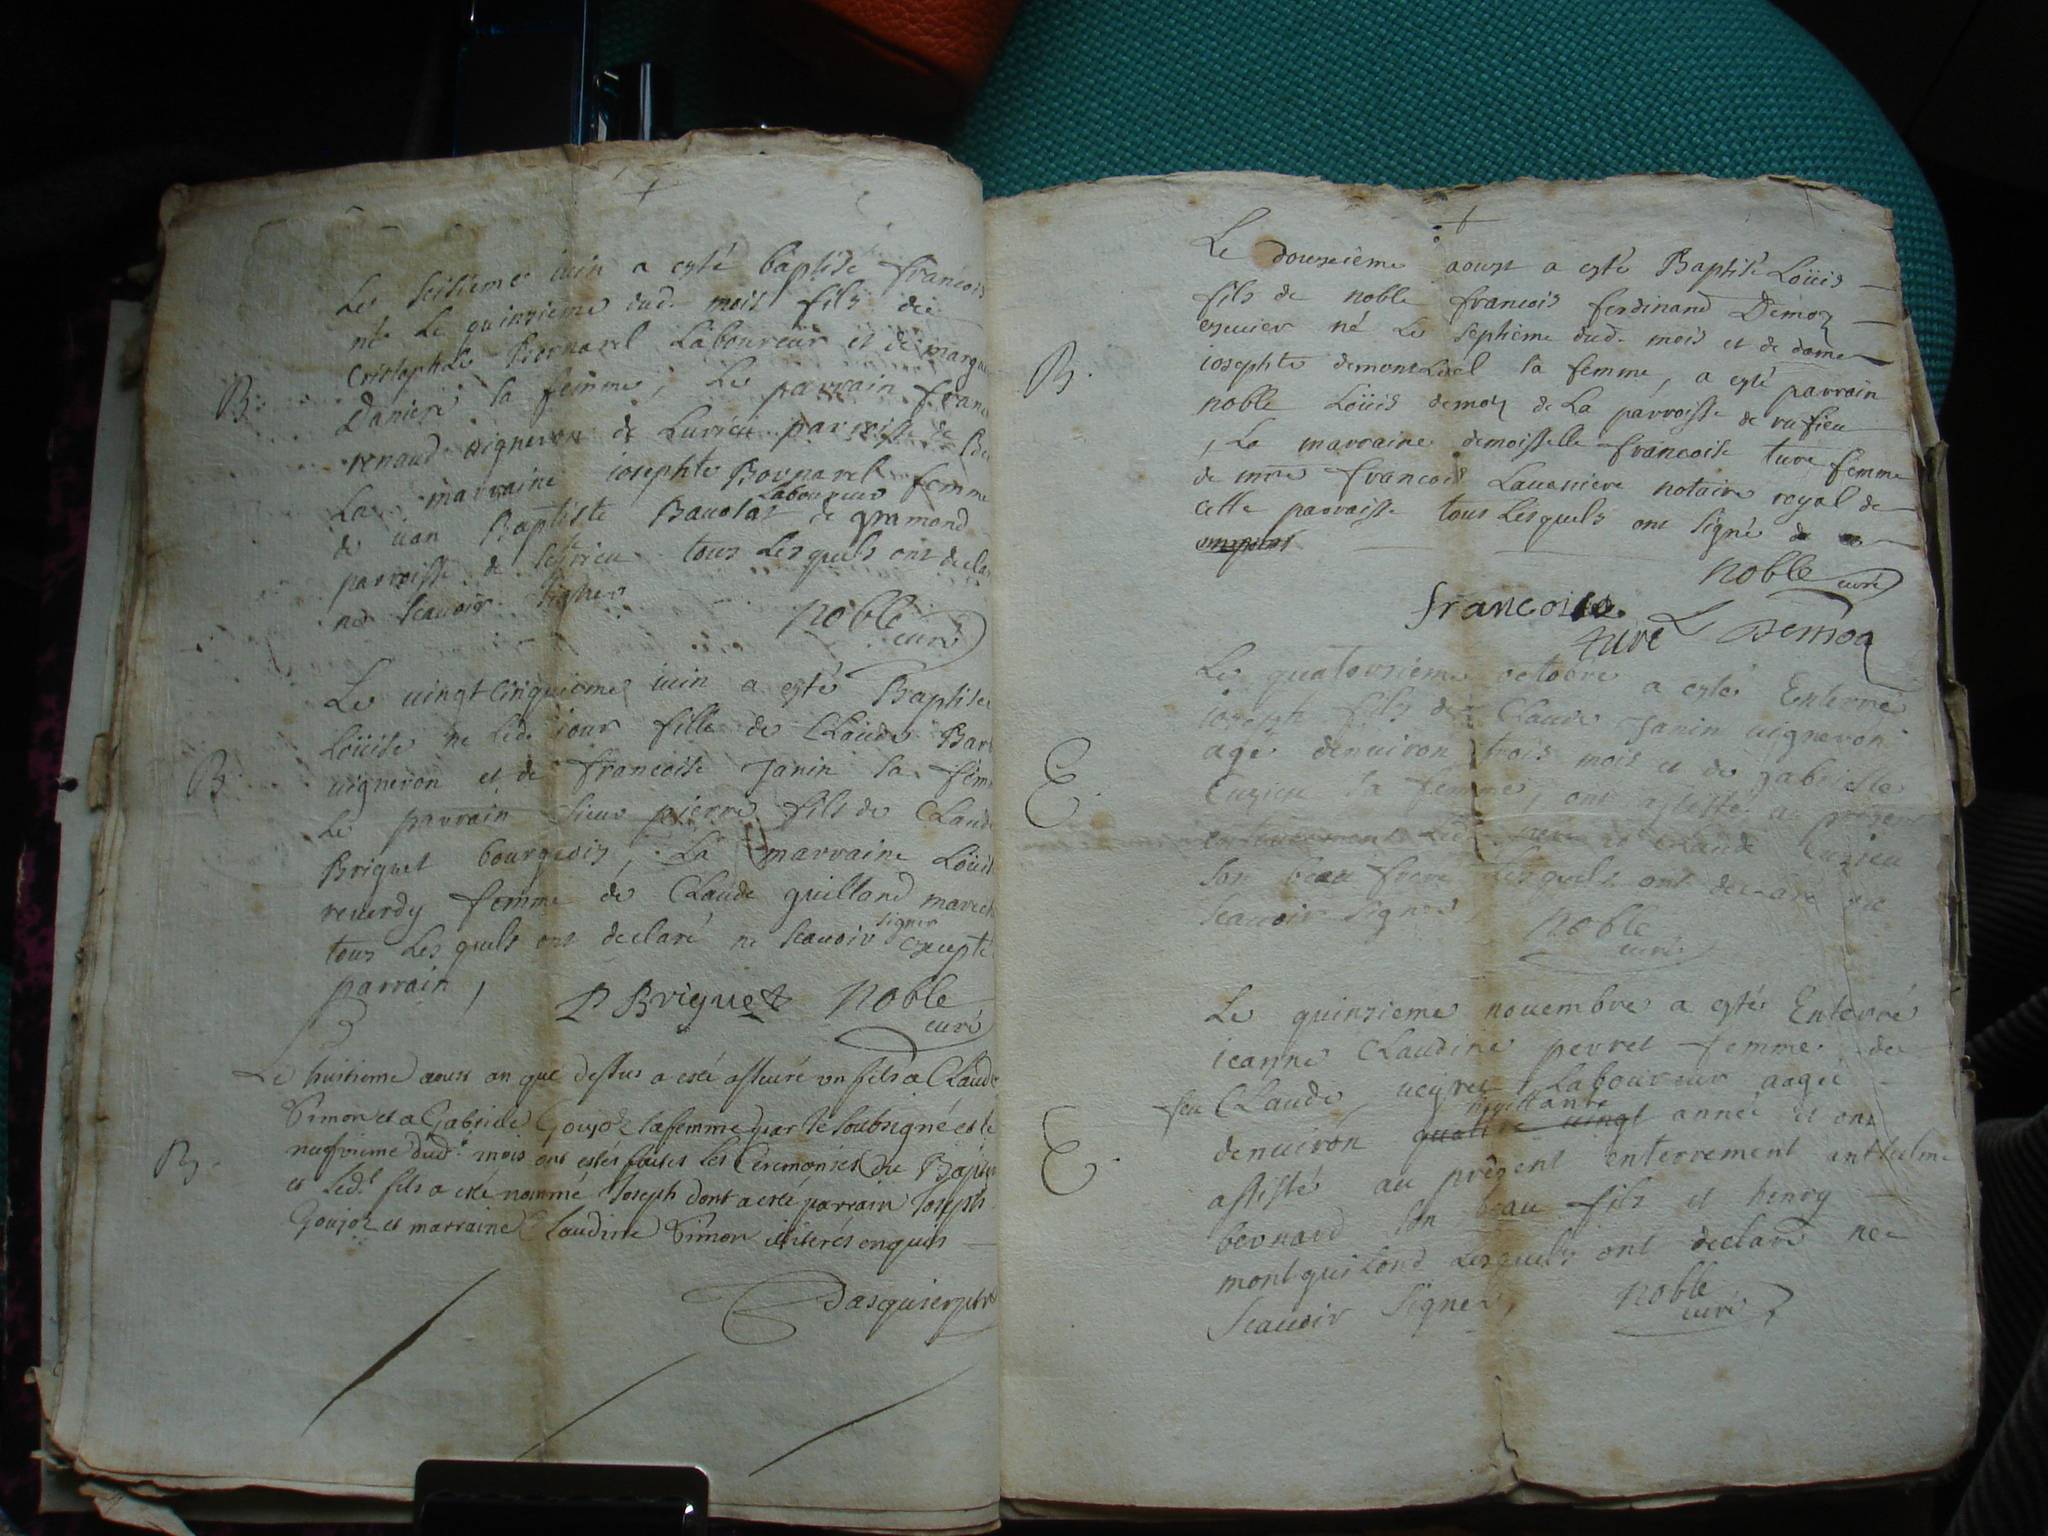 Le seisieme iuin a esté baptisé francois
né Le quinsieme dud. mois fils de
Cristophle Bornarel Laboureur et de margue
Daniere sa femme, Le parrain franc
renaud vigneron de Lurieu parroisse de
La marraine iosephte Bornarel femme
de iian Baptiste Bauolat Laboureur de gramond
parroisse de tous Lesquels ont decla
ne scauoir signer
noble
curé
Le uingt cinquieme iuin a esté Baptisée
Loüise né led. iour fille de Claude Bar
B.
uigneron et de francoise Janin sa fem
Le parrain sieur pierre fils de Claude
Briquet bourgeois, La marraine Loüise
reuerdy femme de Claude guilland marech
tous Lesquels ont declaré ne scauoir signer excepté
parrain,
P Briquet noble
curé
Le huitieme aoust an que dessus a esté assuré un fils a Claude
Simon et a Gabriele Goujoz sa femme par le soubsigné et le
B.
neufvieme dud.t mois ont estes faites les Ceremonies du Bapte
et led.t fils a esté nommé Joseph dont a esté parrain Joseph
Goujoz et marraine Claudine Simon illiterés enquis
Le dousieme aoust a esté Baptisé Loüis
fils de noble francois ferdinand Demoz
escuier né Le septième dud. mois et de dame
B.
iosephte demontLuel sa femme, a esté parrain
noble Loüis demoz de La parroisse de rufieu
, La marraine demoisselle francoise ture femme
de mre francois Lauaniere notaire royal de
cette parroisse tous Lesquels ont signé
noble curé
francoise
ture L Demoz
Le quatorsieme octobre a esté Enterré
ioseph fils de Claude Janin uigneron
agé denuiron trois mois et de gabrielle
E.
Cuzieu sa femme, ont assisté au present
enterrement Led. pere et Claude Cuzieu
son beau frere Lesquels ont declaré ne
scauoir signer
noble
curé
Le quinsieme nouembre a esté Enterré
ieanne Claudine perret femme de
feu Claude ueyret Laboureur aagée
E.
denuiron quatre uingt septante année et ont
assisté au present enterrement anthelme
bernard son beau fils et henry
montguilond Lesquels ont declaré ne
scauoir signer,
noble
curé